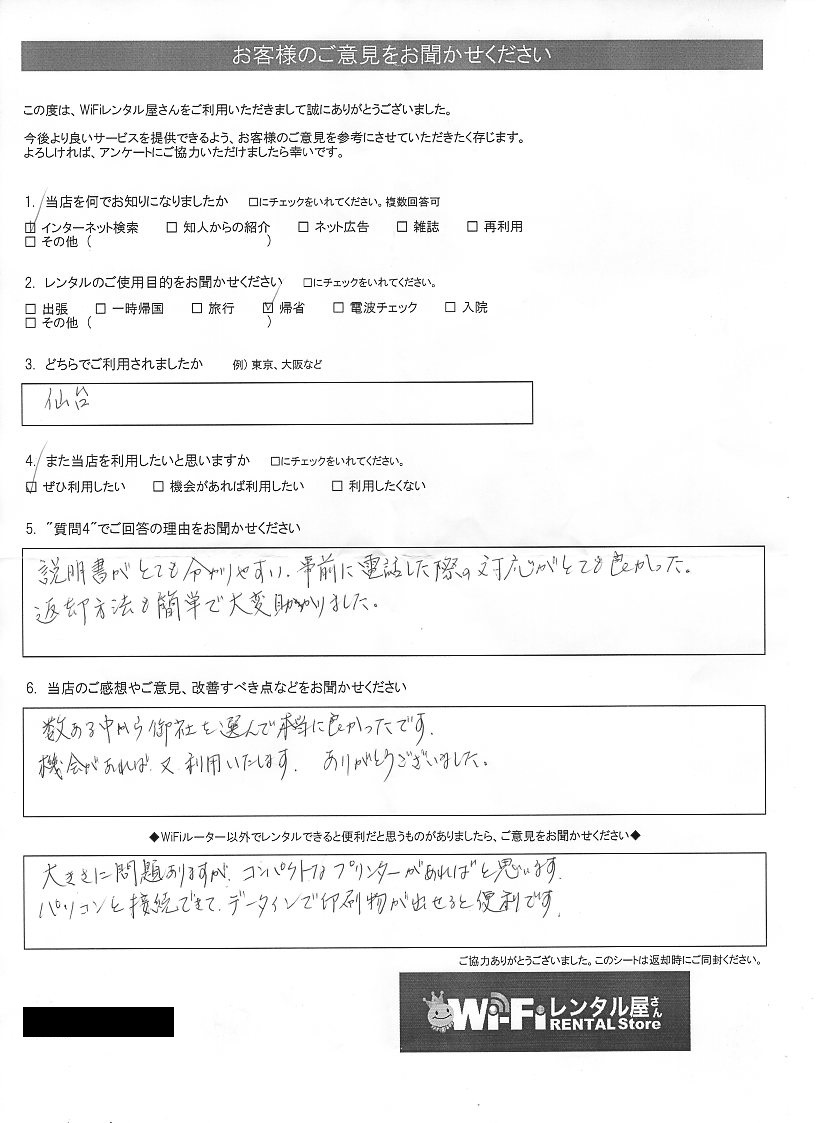 お客様のご意見をお聞かせください
この度は、WiFiレンタル屋さんをご利用いただきまして誠にありがとうございました。
今後より良いサービスを提供できるよう、お客様のご意見を参考にさせていただきたく存じます。
よろしければ、アンケートにご協力いただけましたら幸いです。
1. 当店を何でお知りになりましたか □にチェックをいれてください。複数回答可
☑ インターネット検索 □ 知人からの紹介 □ ネット広告 □ 雑誌 □ 再利用
□ その他 ( )
2. レンタルのご使用目的をお聞かせください □にチェックをいれてください。
□ 出張 □ 一時帰国 □ 旅行 ☑ 帰省 □ 電波チェック □ 入院
□ その他 ( )
3. どちらでご利用されましたか 例) 東京、大阪など
仙台
4. また当店を利用したいと思いますか □にチェックをいれてください。
☑ ぜひ利用したい □ 機会があれば利用したい □ 利用したくない
5. "質問4"でご回答の理由をお聞かせください
説明書がとても分かりやすい、事前に電話した際の対応がとても良かった。
返却方法も簡単で大変助かりました。
6. 当店のご感想やご意見、改善すべき点などをお聞かせください
数ある中から御社を選んで本当に良かったです。
機会があれば又利用いたします。 ありがとうございました。
◆WiFiルーター以外でレンタルできると便利だと思うものがありましたら、ご意見をお聞かせください◆
大きさに問題ありますが、コンパクトなプリンターがあればと思います。
パソコンと接続できて、データインで印刷物が出せると便利です。
ご協力ありがとうございました。このシートは返却時にご同封ください。
Wi-Fiレンタル屋さん
RENTAL Store